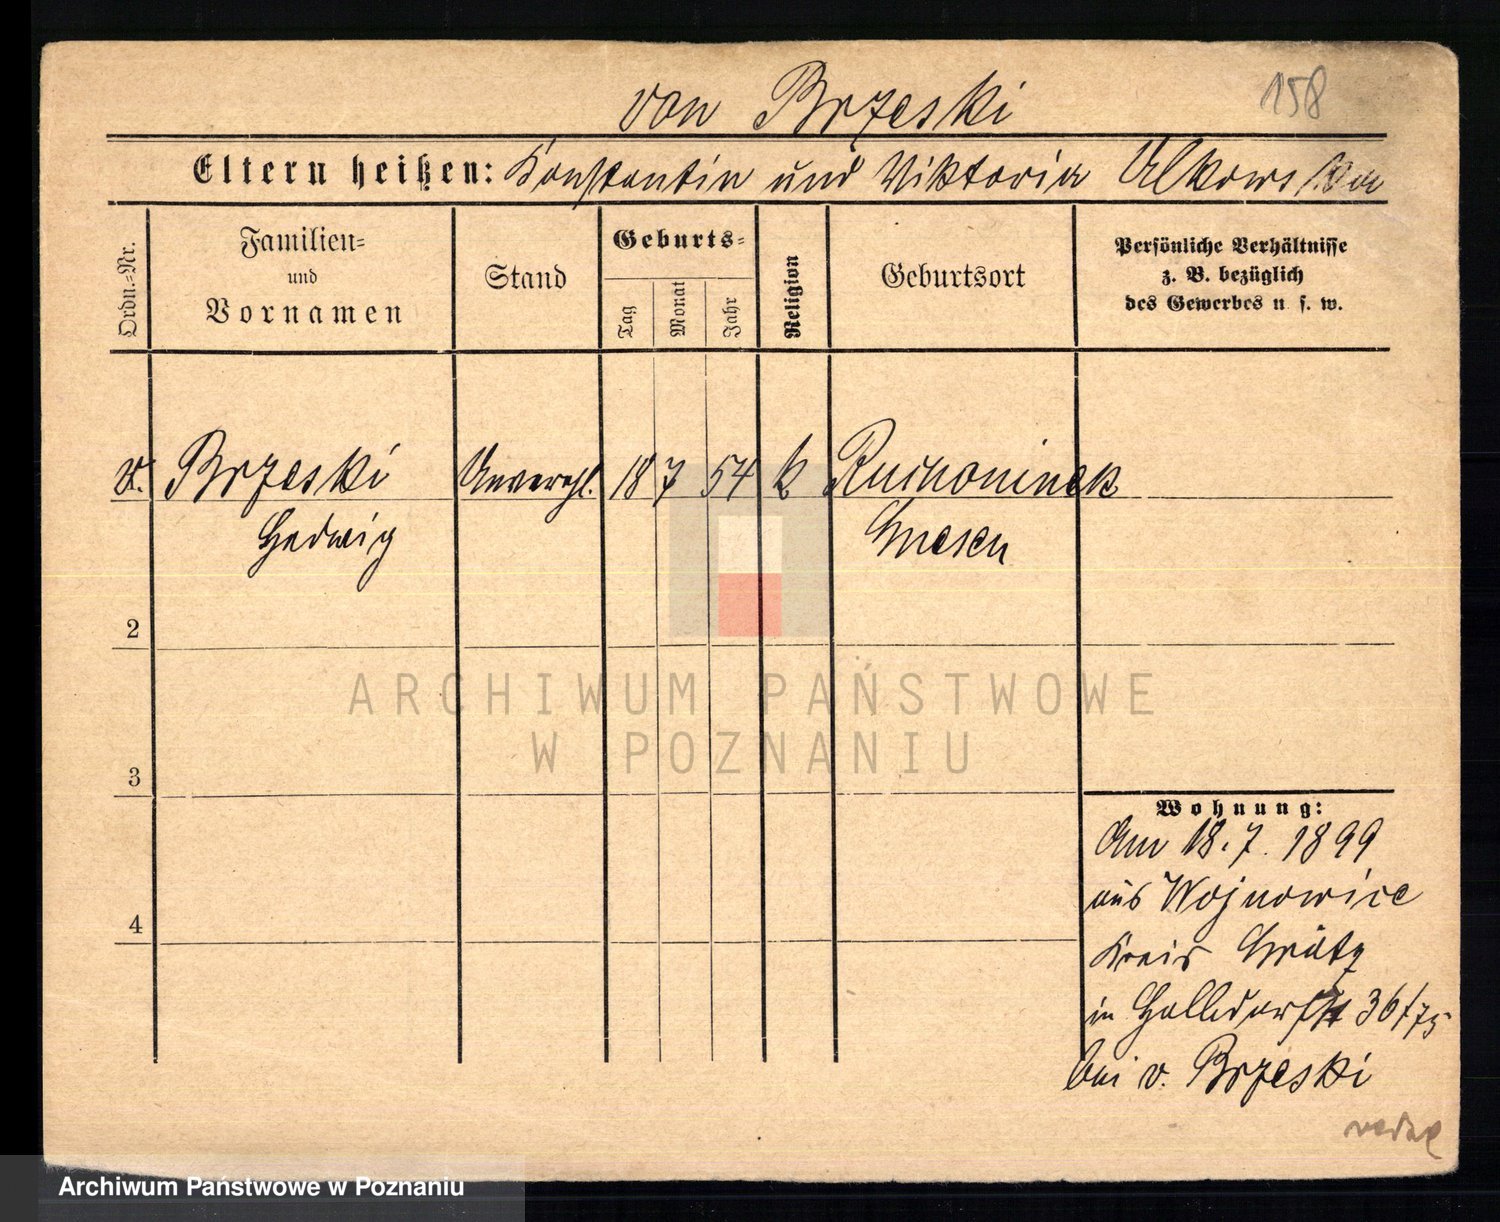 von Brzeski
158
Eltern heißen: Konstantin und Viktoria Ulkowska
Ordn.-Nr.
Familien-
und
Vornamen
Stand
Geburts-
Tag
Monat
Jahr
Religion
Geburtsort
Persönliche Verhältnisse
z. B. bezüglich
des Gewerbes u. s. w.
v. Brzeski Unverehl. 18 7 54 k Ruchocinek
Hedwig Gnesen
2
3
4
Wohnung:
Am 18.7.1899
aus Wojnowice
Kreis Grätz
in Halldorfstr 36/75
bei v. Brzeski
ARCHIWUM PAŃSTWOWE
W POZNANIU
Archiwum Państwowe w Poznaniu